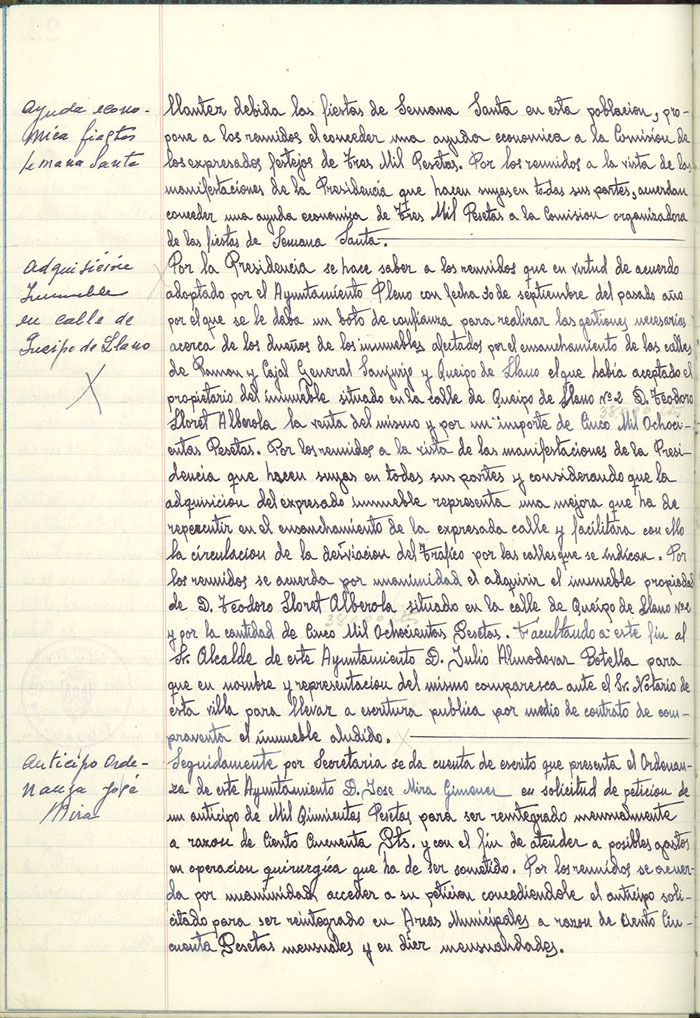 Ayuda econo-
mica fiestas
Semana Santa
llantez debida las fiestas de Semana Santa en esta poblacion, pro-
pone a los reunidos el conceder una ayuda economica a la Comisión de
los expresados festejos de Tres Mil Pesetas. Por los reunidos a la vista de las
manifestaciones de la Presidencia que hacen suyas en todas sus partes, acuerdan
conceder una ayuda economica de Tres Mil Pesetas a la Comision organizadora
de las fiestas de Semana Santa.
Adquisición
Inmueble
en calle de
Queipo de Llano
X
Por la Presidencia se hace saber a los reunidos que en virtud de acuerdo
adoptado por el Ayuntamiento Pleno con fecha 30 de septiembre del pasado año
por el que se le daba un boto de confianza para realizar las gestiones necesarias
acerca de los dueños de los inmuebles afectados por el ensanchamiento de las calles
de Ramon y Cajal General Sanjurjo y Queipo de Llano el que habia aceptado el
propietario del inmueble situado en la calle de Queipo de Llano Nº 2 D. Teodoro
Lloret Alberola la venta del mismo y por un importe de Cinco Mil Ochoci-
entas Pesetas. Por los reunidos a la vista de las manifestaciones de la Presi-
dencia que hacen suyas en todas sus partes y considerando que la
adquisicion del expresado inmueble representa una mejora que ha de
repercutir en el ensanchamiento de la expresada calle y facilitara con ello
la circulacion de la desviacion del Tráfico por las calles que se indican. Por
los reunidos se acuerda por unanimidad el adquirir el inmueble propiedad
de D. Teodoro Lloret Alberola situado en la calle de Queipo de Llano Nº 2
y por la cantidad de Cinco Mil Ochocientas Pesetas. Facultando a este fin al
Sr. Alcalde de este Ayuntamiento D. Julio Almodovar Botella para
que en nombre y representacion del mismo comparesca ante el Sr. Notario de
esta villa para llevar a escritura publica por medio de contrato de com-
praventa el inmueble aludido.
Anticipo Orde-
nanza José
Mira
Seguidamente por Secretaria se da cuenta de escrito que presenta el Ordenan-
za de este Ayuntamiento D. Jose Mira Gimenez en solicitud de peticion de
un anticipo de Mil Quinientas Pesetas para ser reintegrado mensualmente
a razon de Ciento Cincuenta Pts. y con el fin de atender a posibles gastos
en operacion quirurgica que ha de ser sometido. Por los reunidos se acuer-
da por unanimidad acceder a su peticion concediendole el anticipo soli-
citado para ser reintegrado en Arcas Municipales a razon de Ciento Cin-
cuenta Pesetas mensuales y en diez mensualidades.